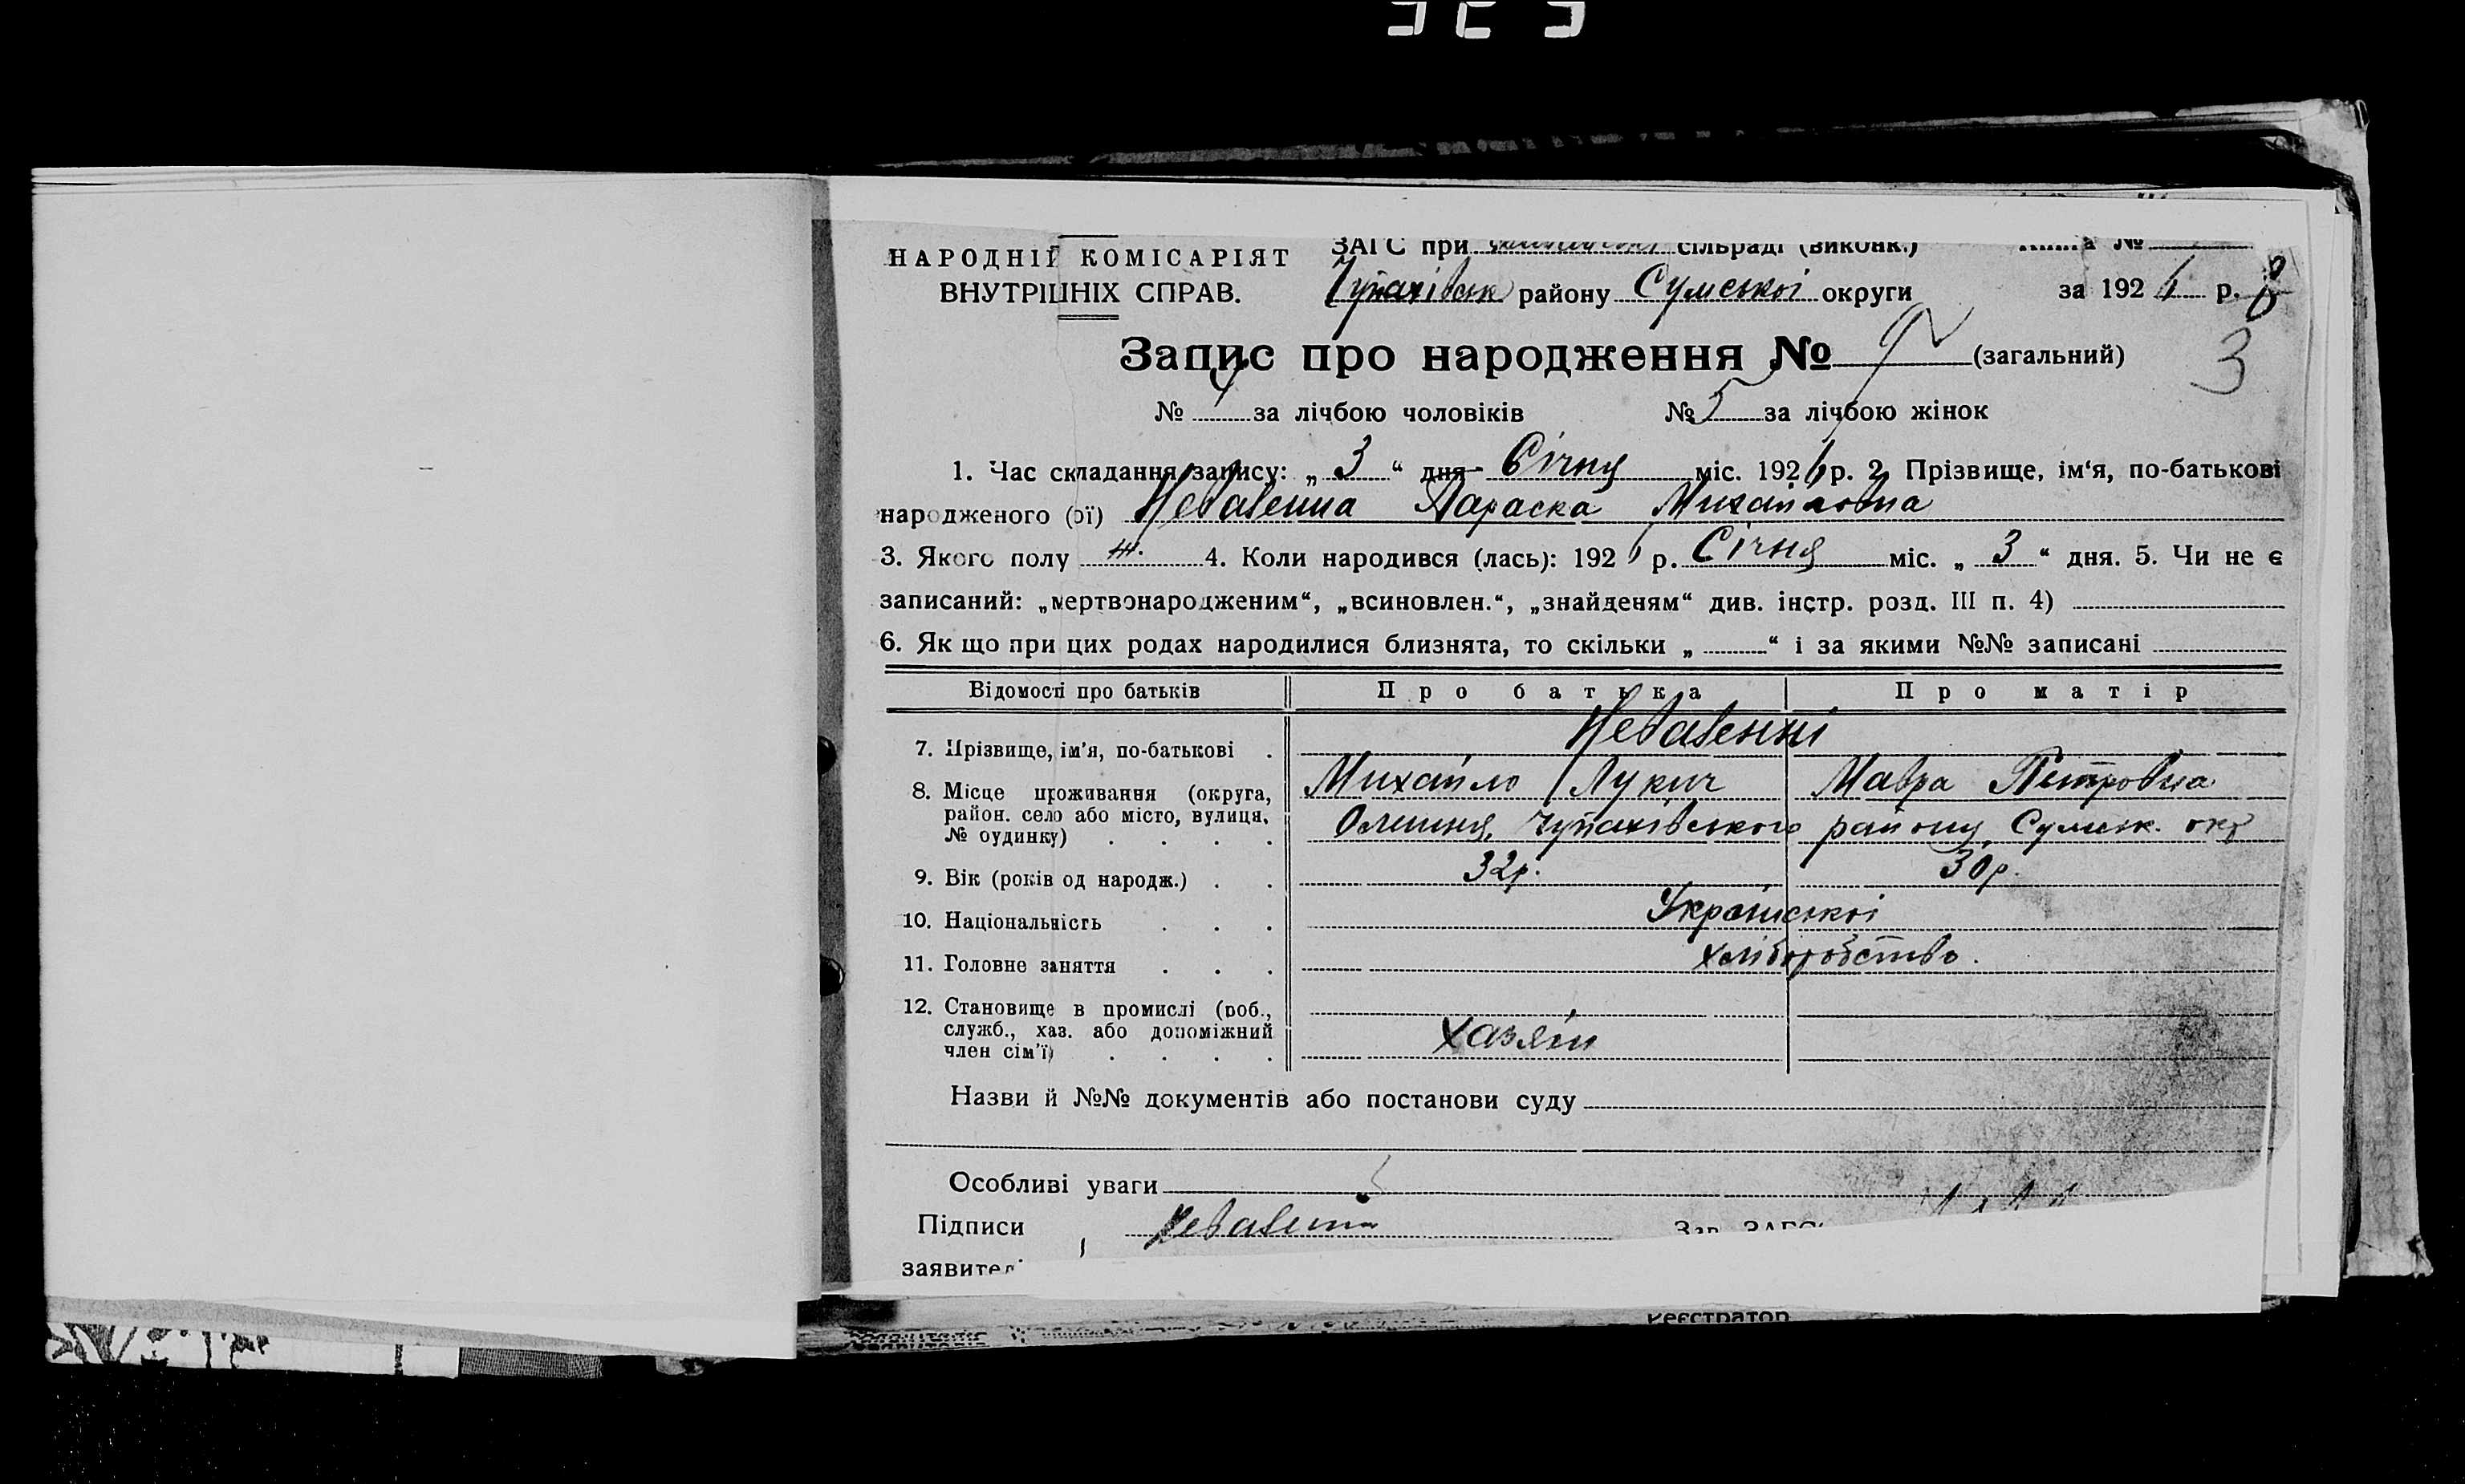 НАРОДНІЙ КОМІСАРІЯТ
ВНУТРІШНІХ СПРАВ.
ЗАГС при сільраді (виконк.)
Книга №
Чупахівськ району Сумської округи
за 192 р.
Запис про народження № 9 (загальний)
3
№ 4 за лічбою чоловіків № 5 за лічбою жінок
1. Час складання запису: „ 3 “ дня Січня міс. 192 р. 2. Прізвище, ім‘я, по-батькові
народженого (ої) Параска Михайловна
3. Якого полу ж. 4. Коли народився (лась): 192 р. Січня міс. „ 3 “ дня. 5. Чи не є
записаний: „мертвонародженим“, „всиновлен.“, „знайденям“ див. інстр. розд. III п. 4)
6. Як що при цих родах народилися близнята, то скільки „ “ і за якими №№ записані
Відомості про батьків Про батька Про матір
7. Прізвище, ім'я, по-батькові .
Михайло Лукич Мавра Петровна
8. Місце проживання (округа,
район. село або місто, вулиця,
№ будинку) . . . .
Олешня, Чупахівського району, Сумськ. окр
9. Вік (років од народж.) . . 32р. 30р.
10. Національність . . . Української
11. Головне заняття . . . хліборобство.
12. Становище в промислі (роб.,
служб., хаз. або допоміжний
член сім'ї) . . . .
хазяїн
Назви й №№ документів або постанови суду
Особливі уваги
Підписи
Зав. ЗАГС
заявител
Реєстратор